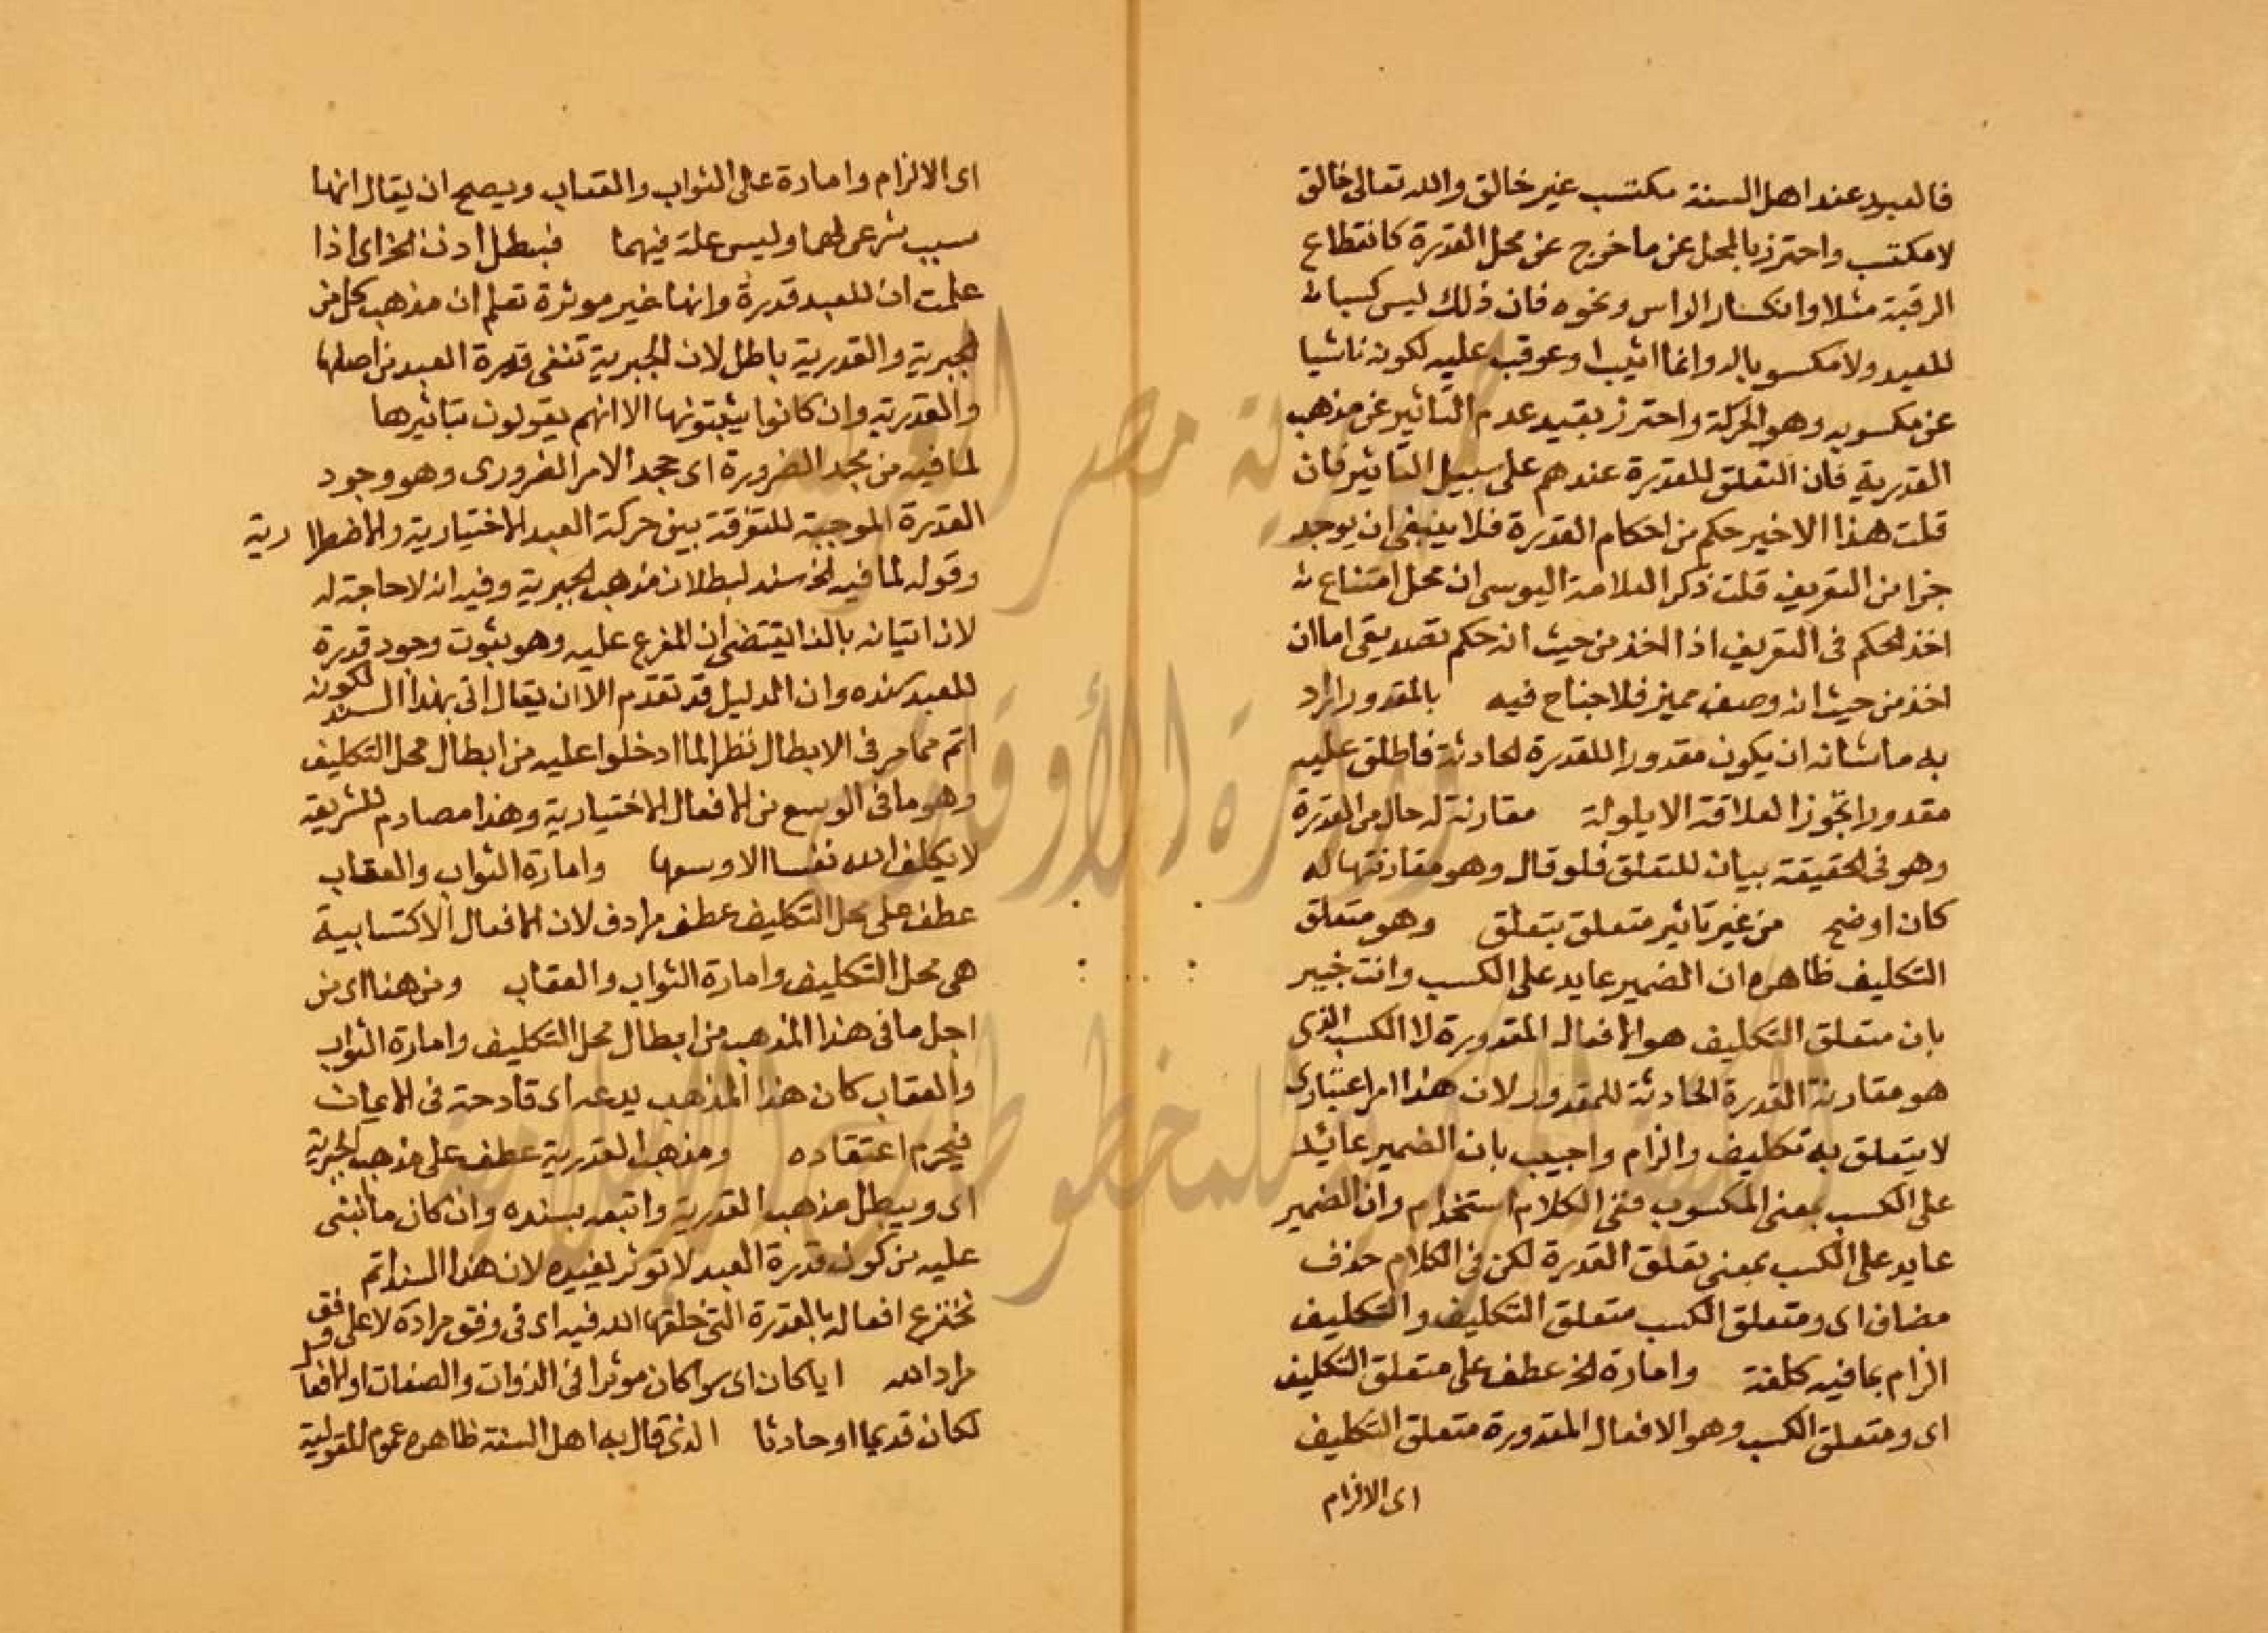 فالعبد عند اهل السنة مكتسب غير خالق والله تعالى خالق
لا مكتسب واحترز بالمحل عن ما خرج عن محل القدرة كانقطاع
الرقبة مثلا وانكسار الراس ونحوه فان ذلك ليس كسبا
للعبد ولا مكسوبا له وانما اثيب او عوقب عليه لكونه ناشيا
عن مكسوبه وهو الحركة واحترز بقيد عدم التاثير عن مذهب
القدرية فان التعلق للقدرة عندهم على سبيل التاثير فان
قلت هذا الاخير حكم من احكام القدرة فلا ينبغى ان يوجد
جزا من التعريف قلت ذكر العلامة اليوسى ان محل امتناع
اخذ الحكم فى التعريف اذا اخذ من حيث انه حكم تصديقى اما ان
اخذ من حيث انه وصف مميز فلا جناح فيه بالمقدور اراد
به ما شانه ان يكون مقدورا للقدرة الحادثة فاطلق عليه
مقدورا تجوزا لعلاقة الايلولة مقارنة له حال من القدرة
وهو فى الحقيقة بيان للتعلق فلو قال وهو مقارنتها له
كان اوضح من غير تاثير متعلق بتعلق وهو متعلق
التكليف ظاهره ان الضمير عايد على الكسب وانت خبير
بان متعلق التكليف هو الافعال المقدورة لا الكسب الذى
هو مقارنة القدرة الحادثة للمقدور لان هذا امر اعتبارى
لا يتعلق به تكليف والزام واجيب بان الضمير عائد
على الكسب بمعنى المكسوب ففى الكلام استخدام وان الضمير
عايد على الكسب بمعنى تعلق القدرة لكن فى الكلام حذف
مضاف اى ومتعلق الكسب متعلق التكليف والتكليف
الزام بما فيه كلفة وامارة الخ عطف على متعلق التكليف
اى ومتعلق الكسب وهو الافعال المقدورة متعلق التكليف
اى الالزام
اى الالزام وامارة على الثواب والعقاب ويصح ان يقال انها
سبب شرعى لهما وليس علة فيهما فبطل اذن الخ اى اذا
علمت ان للعبد قدرة وانها غير موثرة تعلم ان مذهب كل من
الجبرية والقدرية باطل لان الجبرية تنفى قدرة العبد من اصلها
والقدرية وان كانوا يثبتونها الا انهم يقولون بتاثيرها
لما فيه من جحد الضرورة اى جحد الامر الضرورى وهو وجود
القدرة الموجبة للتفرقة بين حركة العبد الاختيارية والاضطرارية
وقوله لما فيه الخ سند لبطلان مذهب الجبرية وفيه انه لا حاجة له
لان اتيانه بالفا يقتضى ان المفرع عليه وهو ثبوت وجود قدرة
للعبد سنده وان الدليل قد تقدم الا ان يقال اتى بهذا السند لكونه
اتم مما مر فى الابطال نظرا لما ادخلوا عليه من ابطال محل التكليف
وهو ما فى الوسع من الافعال الاختيارية وهذا مصادم للشريعة
لا يكلف الله نفسا الا وسعها وامارة الثواب والعقاب
عطف على محل التكليف عطف مرادف لان الافعال الاكتسابية
هى محل التكليف وامارة الثواب والعقاب ومن هنا اى من
اجل ما فى هذا المذهب من ابطال محل التكليف وامارة الثواب
والعقاب كان هذا المذهب بدعه اى قادحة فى الايمان
فيحرم اعتقاده ومذهب القدرية عطف على مذهب الجبرية
اى ويبطل مذهب القدرية واتبعه بسنده وان كان ما انبنى
عليه من كون قدرة العبد لا توثر يفيده لان هذا السند اتم
تخترع افعاله بالقدرة التى خلقها الله فيه اى فى وفق مراده لا على وفق
مراد الله ايا كان اى سوا كان موثرا فى الذوات والصفات او الافعال
كان قديما او حادثا الذى قال به اهل السنة ظاهره عموم المقولية
جمهورية مصر العربية
وزارة الأوقاف
المكتبة المركزية للمخطوطات الإسلامية